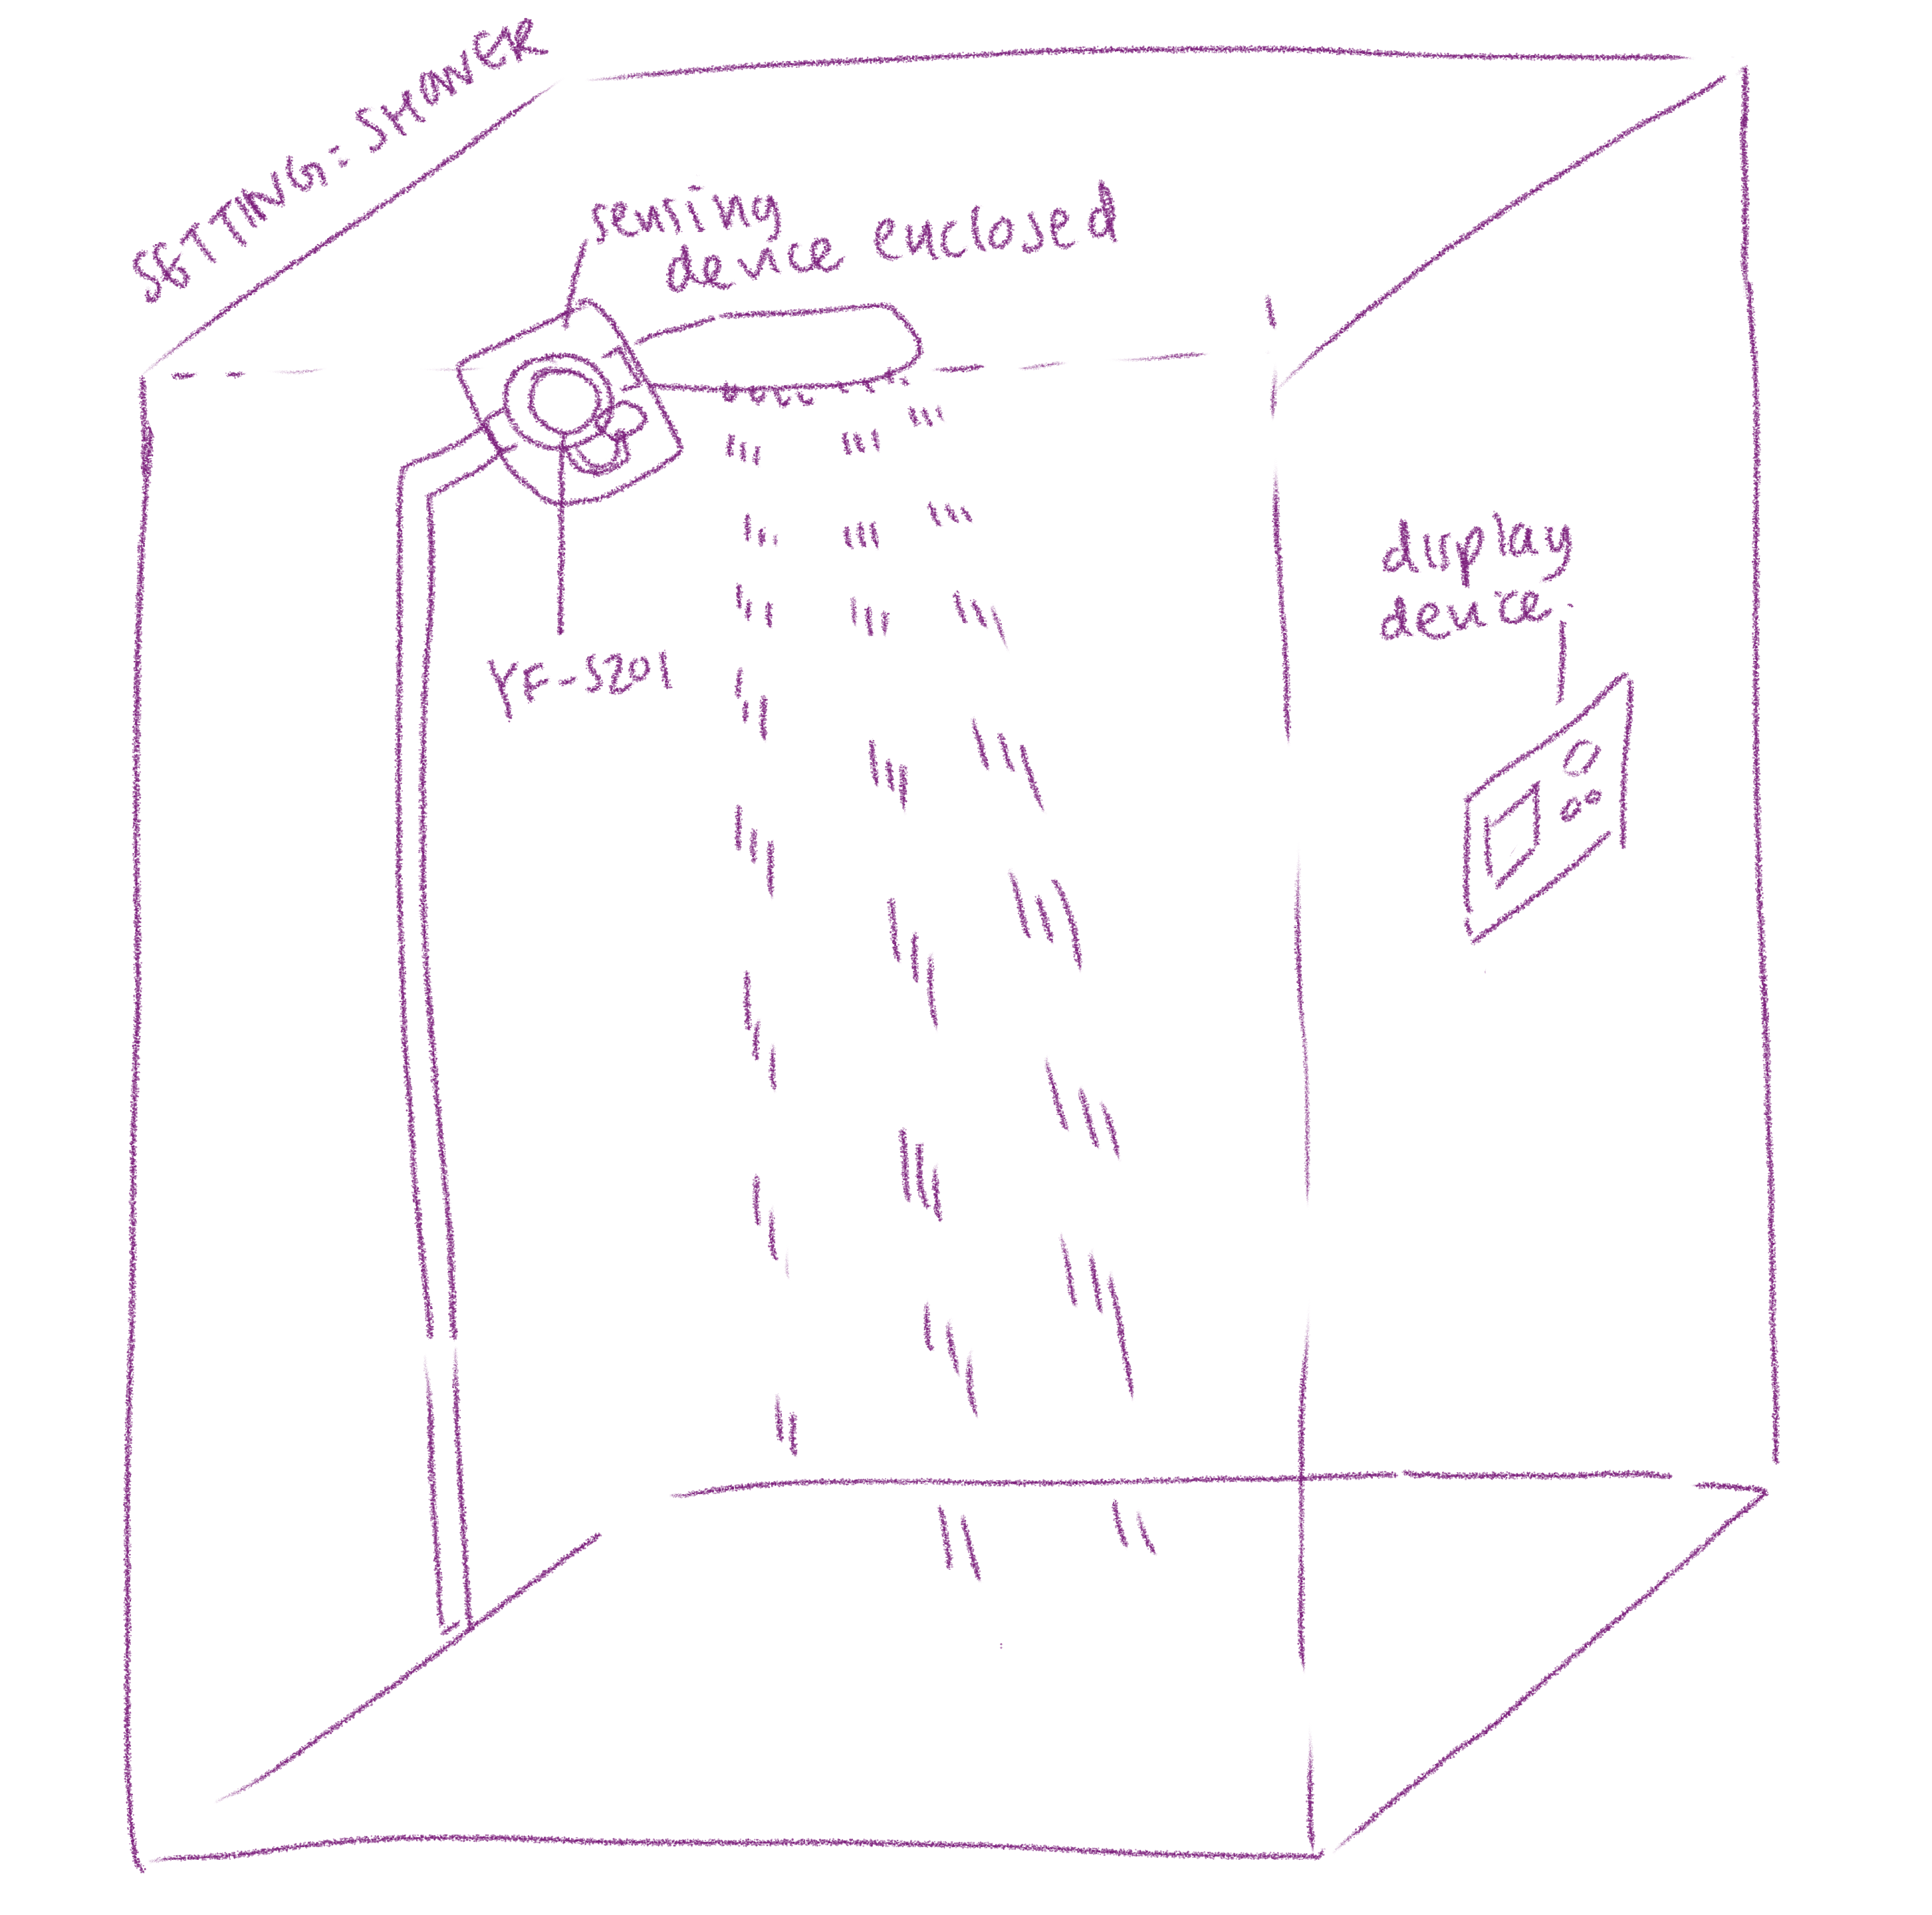 SETTING: SHOWER
sensing
device enclosed
YF-S201
display
device.